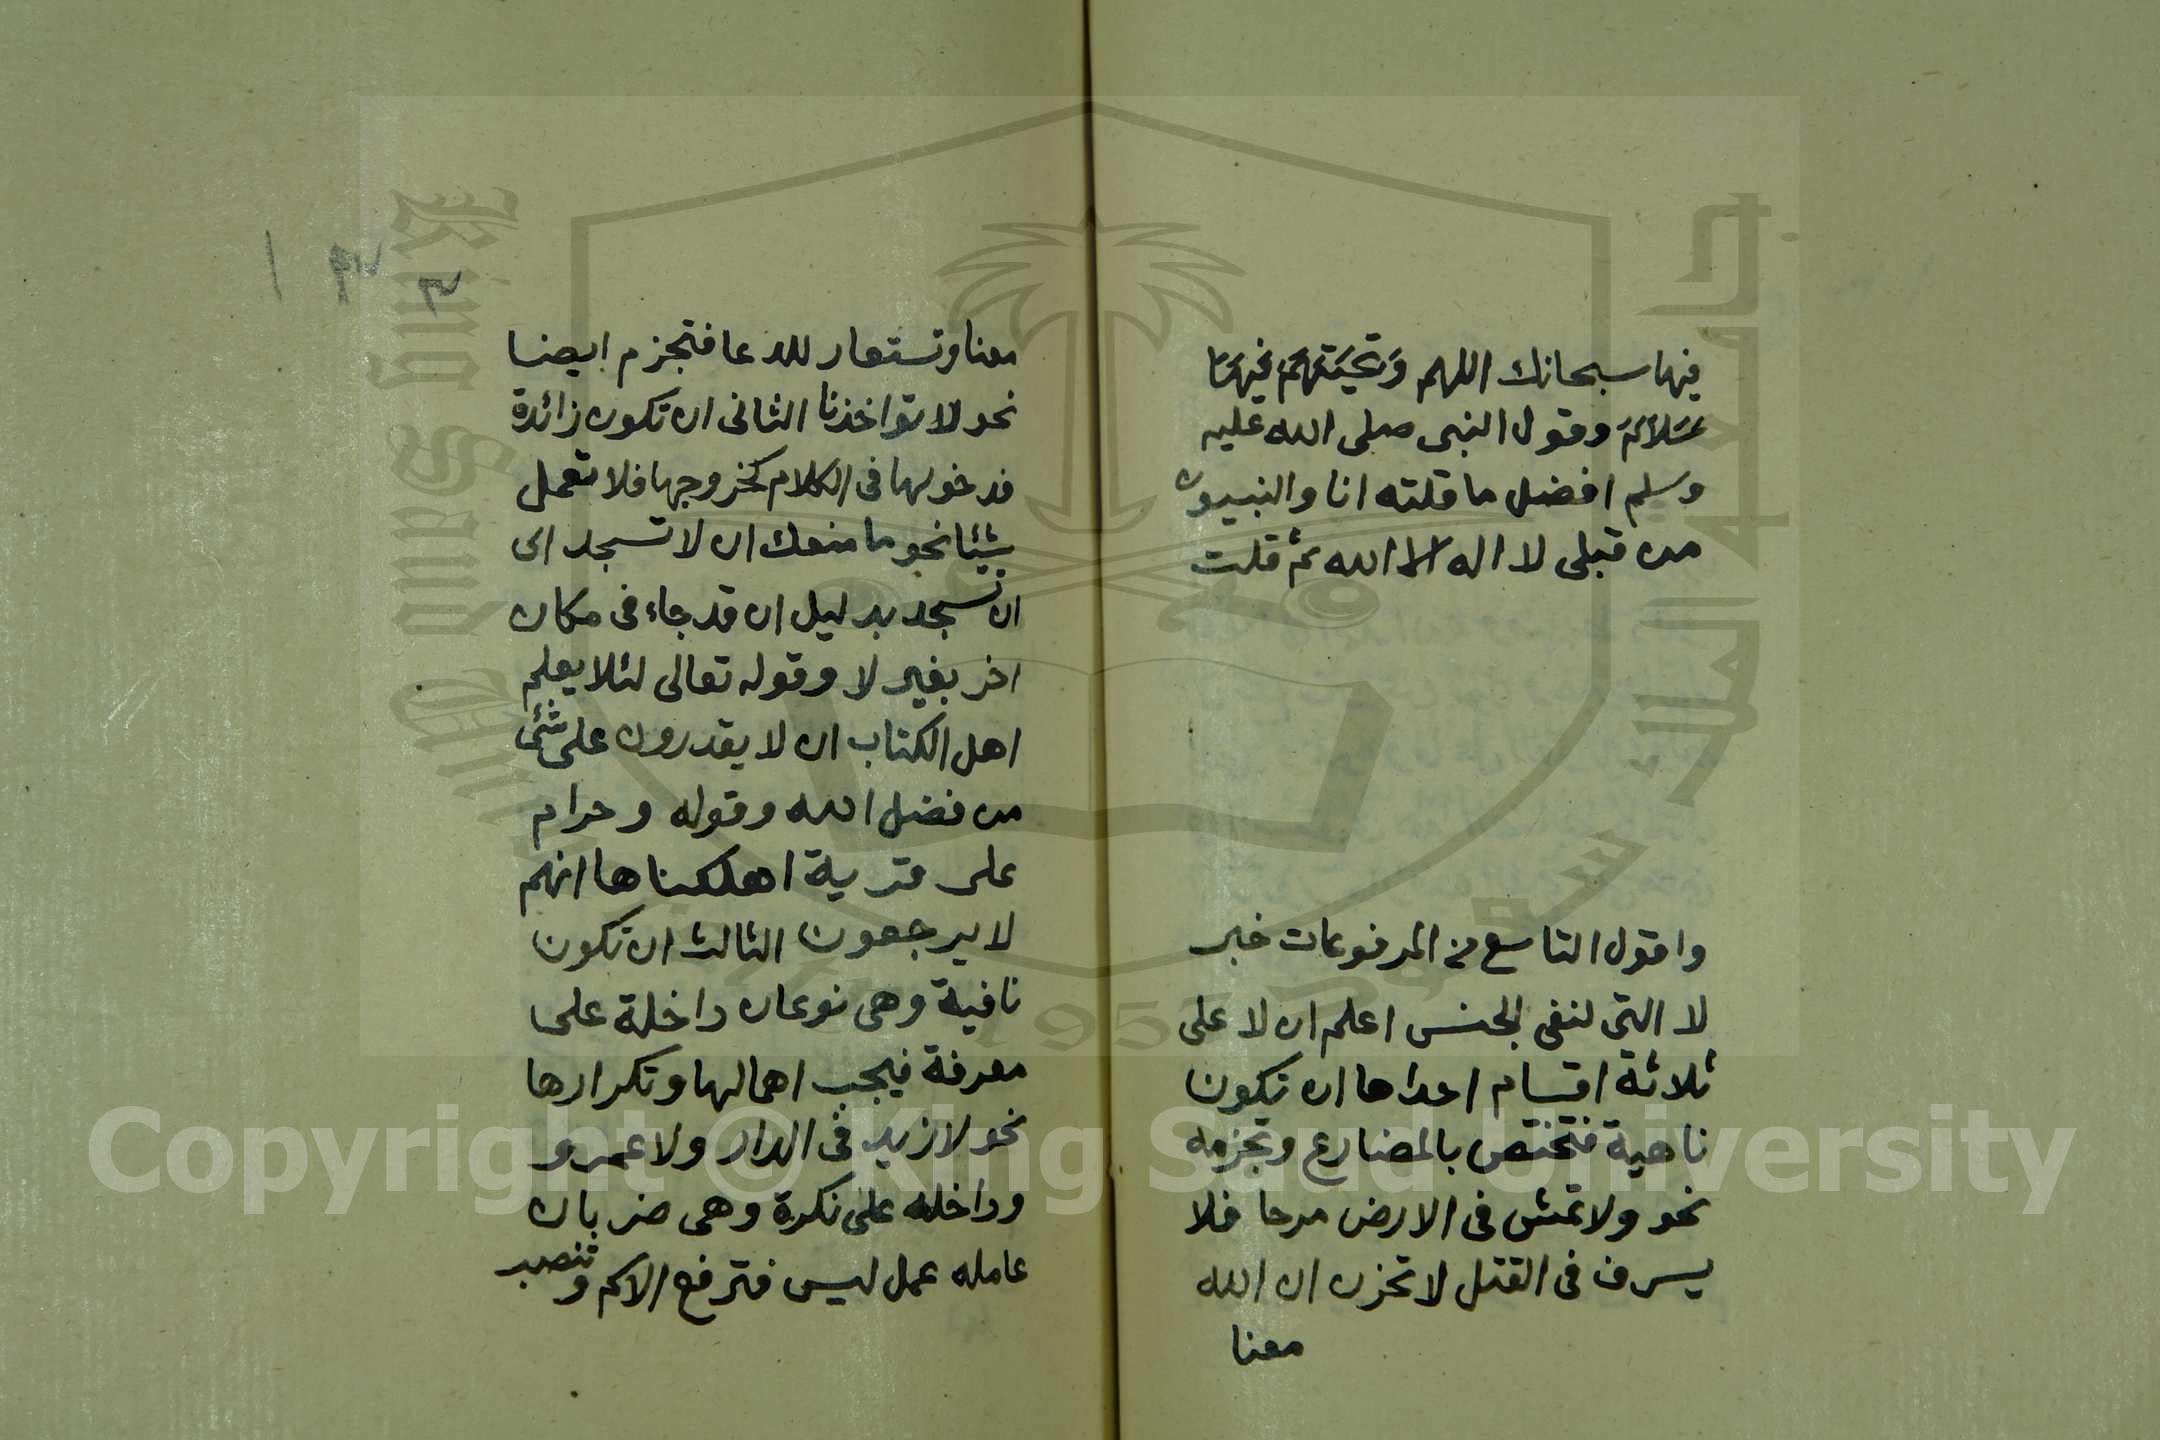 فيها سبحانك اللهم وَتَحِيَّتُهُمْ فِيهَا
سَلَامٌ وقول النبى صلى الله عليه
وسلم افضل ما قلته انا والنبيون
من قبلى لا اله الا الله ثم قلت
واقول التاسع من المرفوعات خبر
لا التى لنفى الجنس اعلم ان لا على
ثلاثة اقسام احداها ان تكون
ناهية فتختص بالمضارع وتجزمه
نحو ولا تمش فى الارض مرحا فلا
يسرف فى القتل لا تحزن ان الله
معنا
معنا وتستعار للدعا فتجزم ايضا
نحو لا تواخذنا الثانى ان تكون زائدة
فدخولها فى الكلام كخروجها فلا تعمل
شيئا نحو ما منعك ان لا تسجد اى
ان تسجد بدليل ان قد جاء فى مكان
اخر بغير لا وقوله تعالى لئلا يعلم
اهل الكتاب ان لا يقدرون على شئ
من فضل الله وقوله وحرام
على قرية اهلكناها انهم
لا يرجعون الثالث ان تكون
نافية وهى نوعان داخلة على
معرفة فيجب اهمالها وتكرارها
نحو لا زيد فى الدار ولا عمرو
وداخله على نكرة وهى ضربان
عامله عمل ليس فترفع الاسم وتنصب
King Saud University
جامعة الملك سعود
1957
Copyright © King Saud University